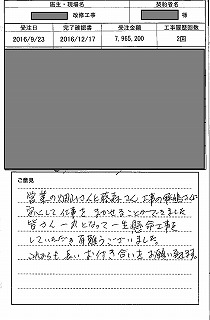 施主・現場名 契約者名
改修工事 様
受注日 完了確認書 受注金額 工事履歴回数
2016/9/23 2016/12/17 7,965,200 2回
ご意見
営業の さんと藤森さん 工事の さんに
安心して仕事を まかせることができました
皆さん 一丸となって一生懸命工事を
していただき有難うございました
これからも 長い お付き合いを お願い致します